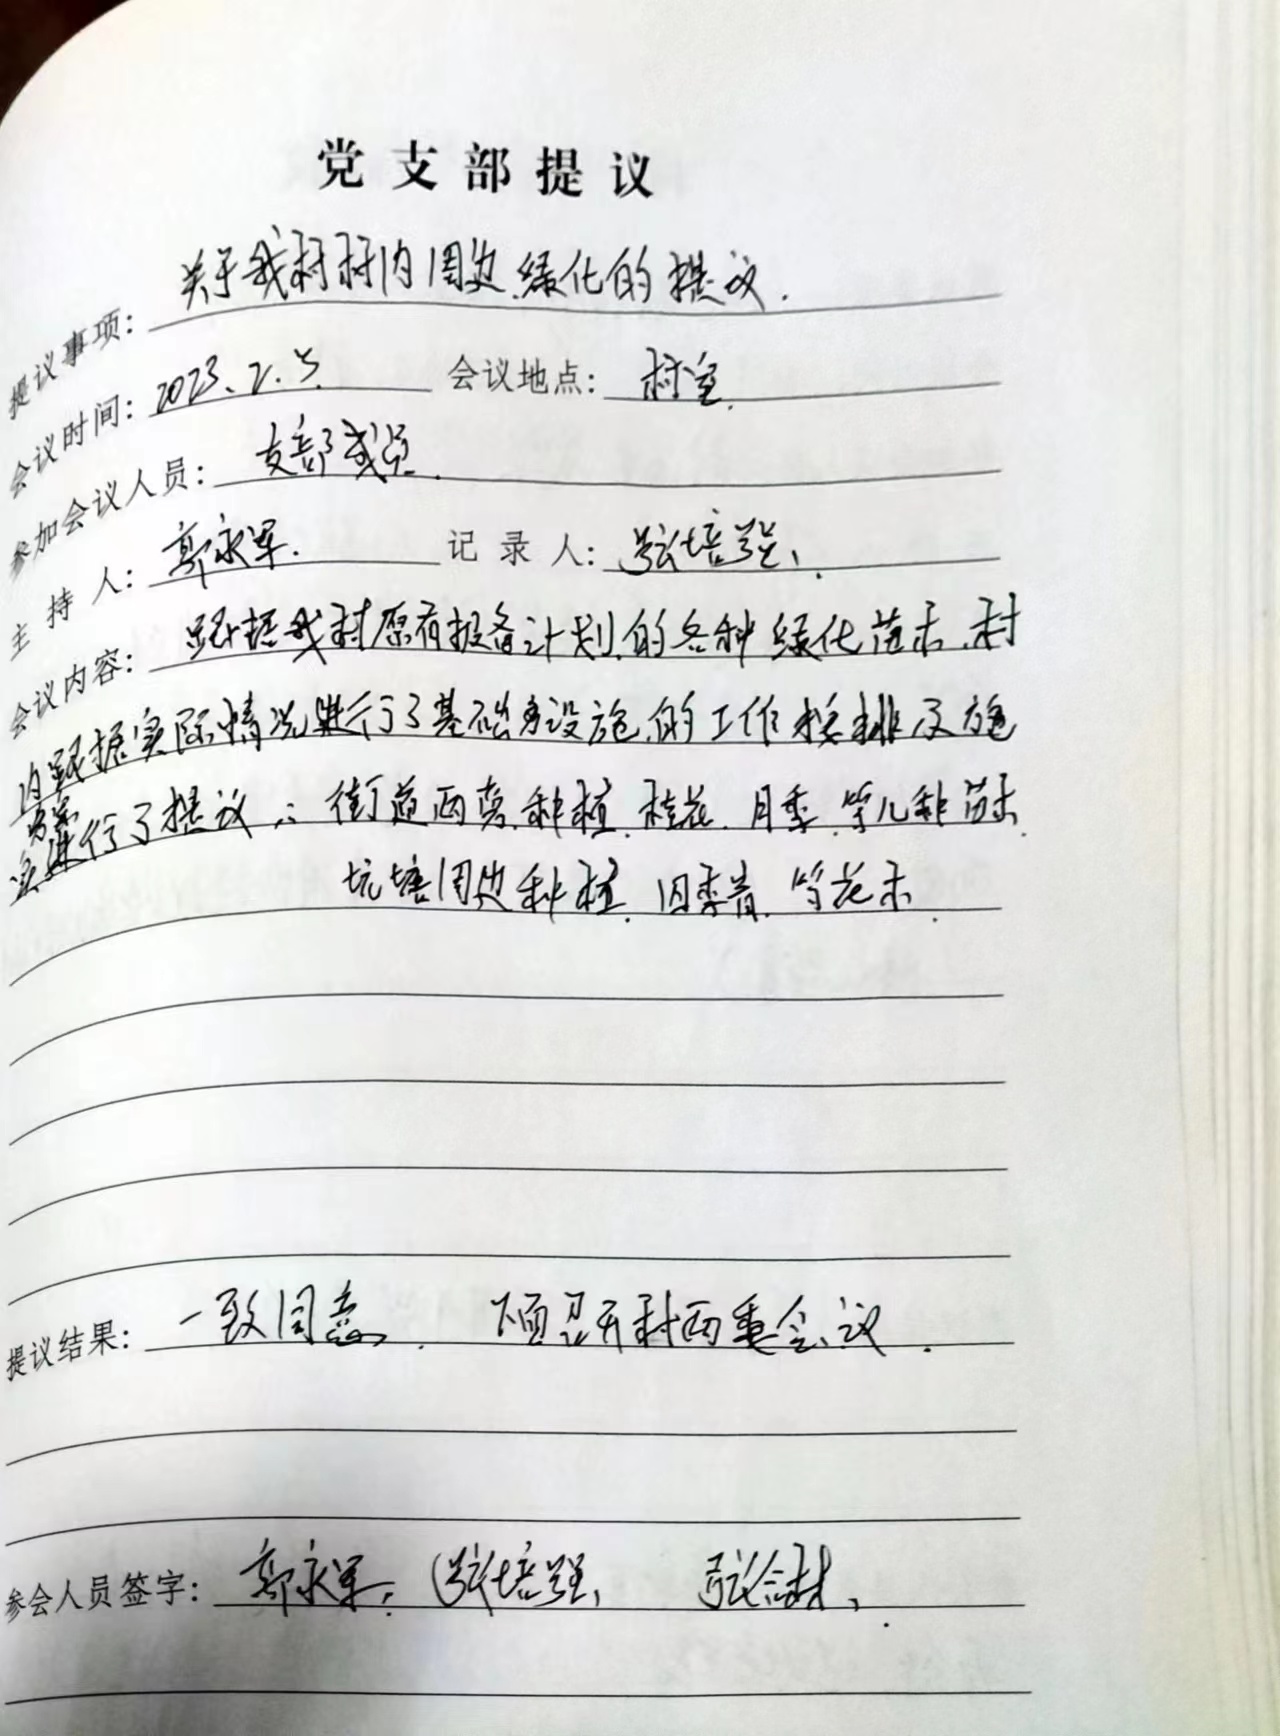 党支部提议
提议事项：关于我村村内周边绿化的提议.
会议时间：2023.2.5. 会议地点：村室.
参加会议人员：支部成员.
主持人：郭永军. 记录人：张培强.
会议内容：跟据我村原有报备计划的各种绿化苗木.村
内跟据实际情况进行了基础设施的工作按排及施
进行了提议：街道两旁种植.桂花.月季.等几种苗木.
坑塘周边种植.四季青.等花木.
提议结果：一致同意. 下面召开村两委会议.
参会人员签字：郭永军. 张培强. 张合林.